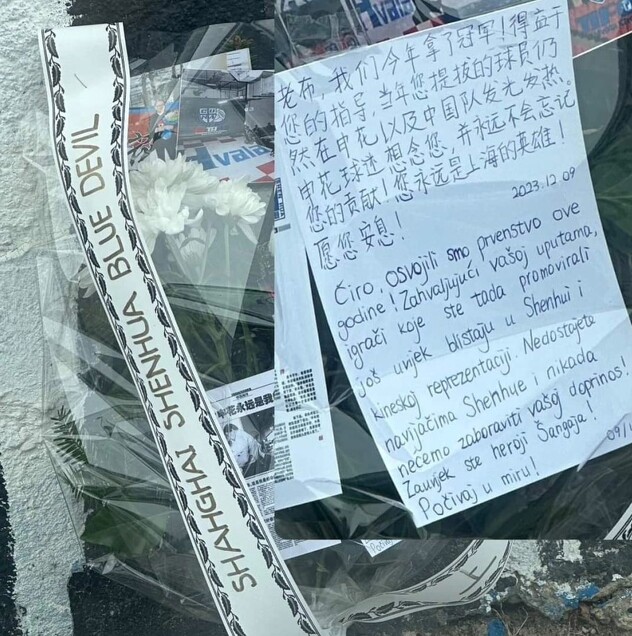 SHANGHAI SHENHUA BLUE DEVIL
Hvala
老布，我们今年拿了冠军！得益于
您的指导，当年您提拔的球员仍
然在申花，以及中国队发光发热。
申花球迷想念您，并永远不会忘记
您的贡献！您永远是上海的英雄！
愿您安息！
2023.12.09
Ćiro, osvojili smo prvenstvo ove
godine! Zahvaljujući vašoj uputama,
igrači koje ste tada promovirali
još uvjek blistaju u Shenhui i
kineskoj reprezentaciji. Nedostajete
navijačima Shenhue i nikada
nećemo zaboraviti vašoj doprinos!
Zauvjek ste heroji Šangaja!
Počivaj u miru!
09/1
花永远是我